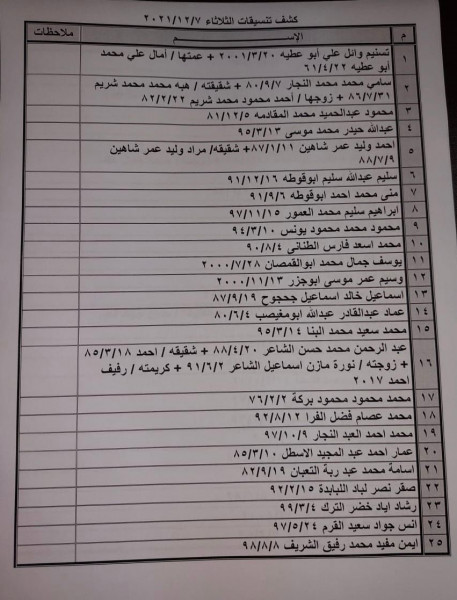 كشف تنسيقات الثلاثاء ٢٠٢١/١٢/٧
م الإســـم ملاحظات
١ تسنيم وائل علي أبو عطيه ٢٠٠١/٣/٢٠ + عمتها / آمال علي محمد
أبو عطيه ٦١/٤/٢٢
٢ سامي محمد محمد النجار ٨٠/٩/٧ + شقيقته / هبه محمد محمد شريم
٨٦/٧/٣١ + زوجها / أحمد محمود محمد شريم ٨٢/٢/٢٢
٣ محمود عبدالحميد محمد المقادمه ٨١/١٢/٥
٤ عبدالله حيدر محمد موسى ٩٥/٣/١٣
٥ احمد وليد عمر شاهين ٨٧/١/١١+ شقيقه/ مراد وليد عمر شاهين
٨٨/٧/٩
٦ سليم عبدالله سليم ابوقوطه ٩١/١٢/١٦
٧ منى محمد احمد ابوقوطه ٩١/٩/٦
٨ ابراهيم سليم محمد العمور ٩٧/١١/١٥
٩ محمود محمد محمود يونس ٩٤/٣/١٠
١٠ محمد اسعد فارس الطناني ٩٠/٨/٤
١١ يوسف جمال محمد ابوالقمصان ٢٠٠٠/٧/٢٨
١٢ وسيم عمر موسى ابوجزر ٢٠٠٠/١١/١٣
١٣ اسماعيل خالد اسماعيل جحجوح ٨٧/٩/١٩
١٤ عماد عبدالقادر عبدالله ابومغيصب ٨٠/٦/٤
١٥ محمد سعيد محمد البنا ٩٥/٣/١٤
١٦ عبد الرحمن محمد حسن الشاعر ٨٨/٤/٢٠ + شقيقه / احمد ٨٥/٣/١٨
+ زوجته / نورة مازن اسماعيل الشاعر ٩١/٦/٢ + كريمته / رفيف
احمد ٢٠١٧
١٧ محمد محمود محمود بركة ٧٦/٢/٢
١٨ محمد عصام فضل الفرا ٩٢/٨/١٢
١٩ محمد احمد العبد النجار ٩٧/١٠/٩
٢٠ عمار احمد عبد المجيد الاسطل ٨٥/٣/١٠
٢١ اسامة محمد عبد ربة التعبان ٨٢/٩/١٩
٢٢ صقر نصر لباد اللبابدة ٩٢/٢/١٥
٢٣ رشاد اياد خضر الترك ٩٩/٣/٤
٢٤ انس جواد سعيد القرم ٩٧/٥/٢٤
٢٥ ايمن مفيد محمد رفيق الشريف ٩٨/٨/٨